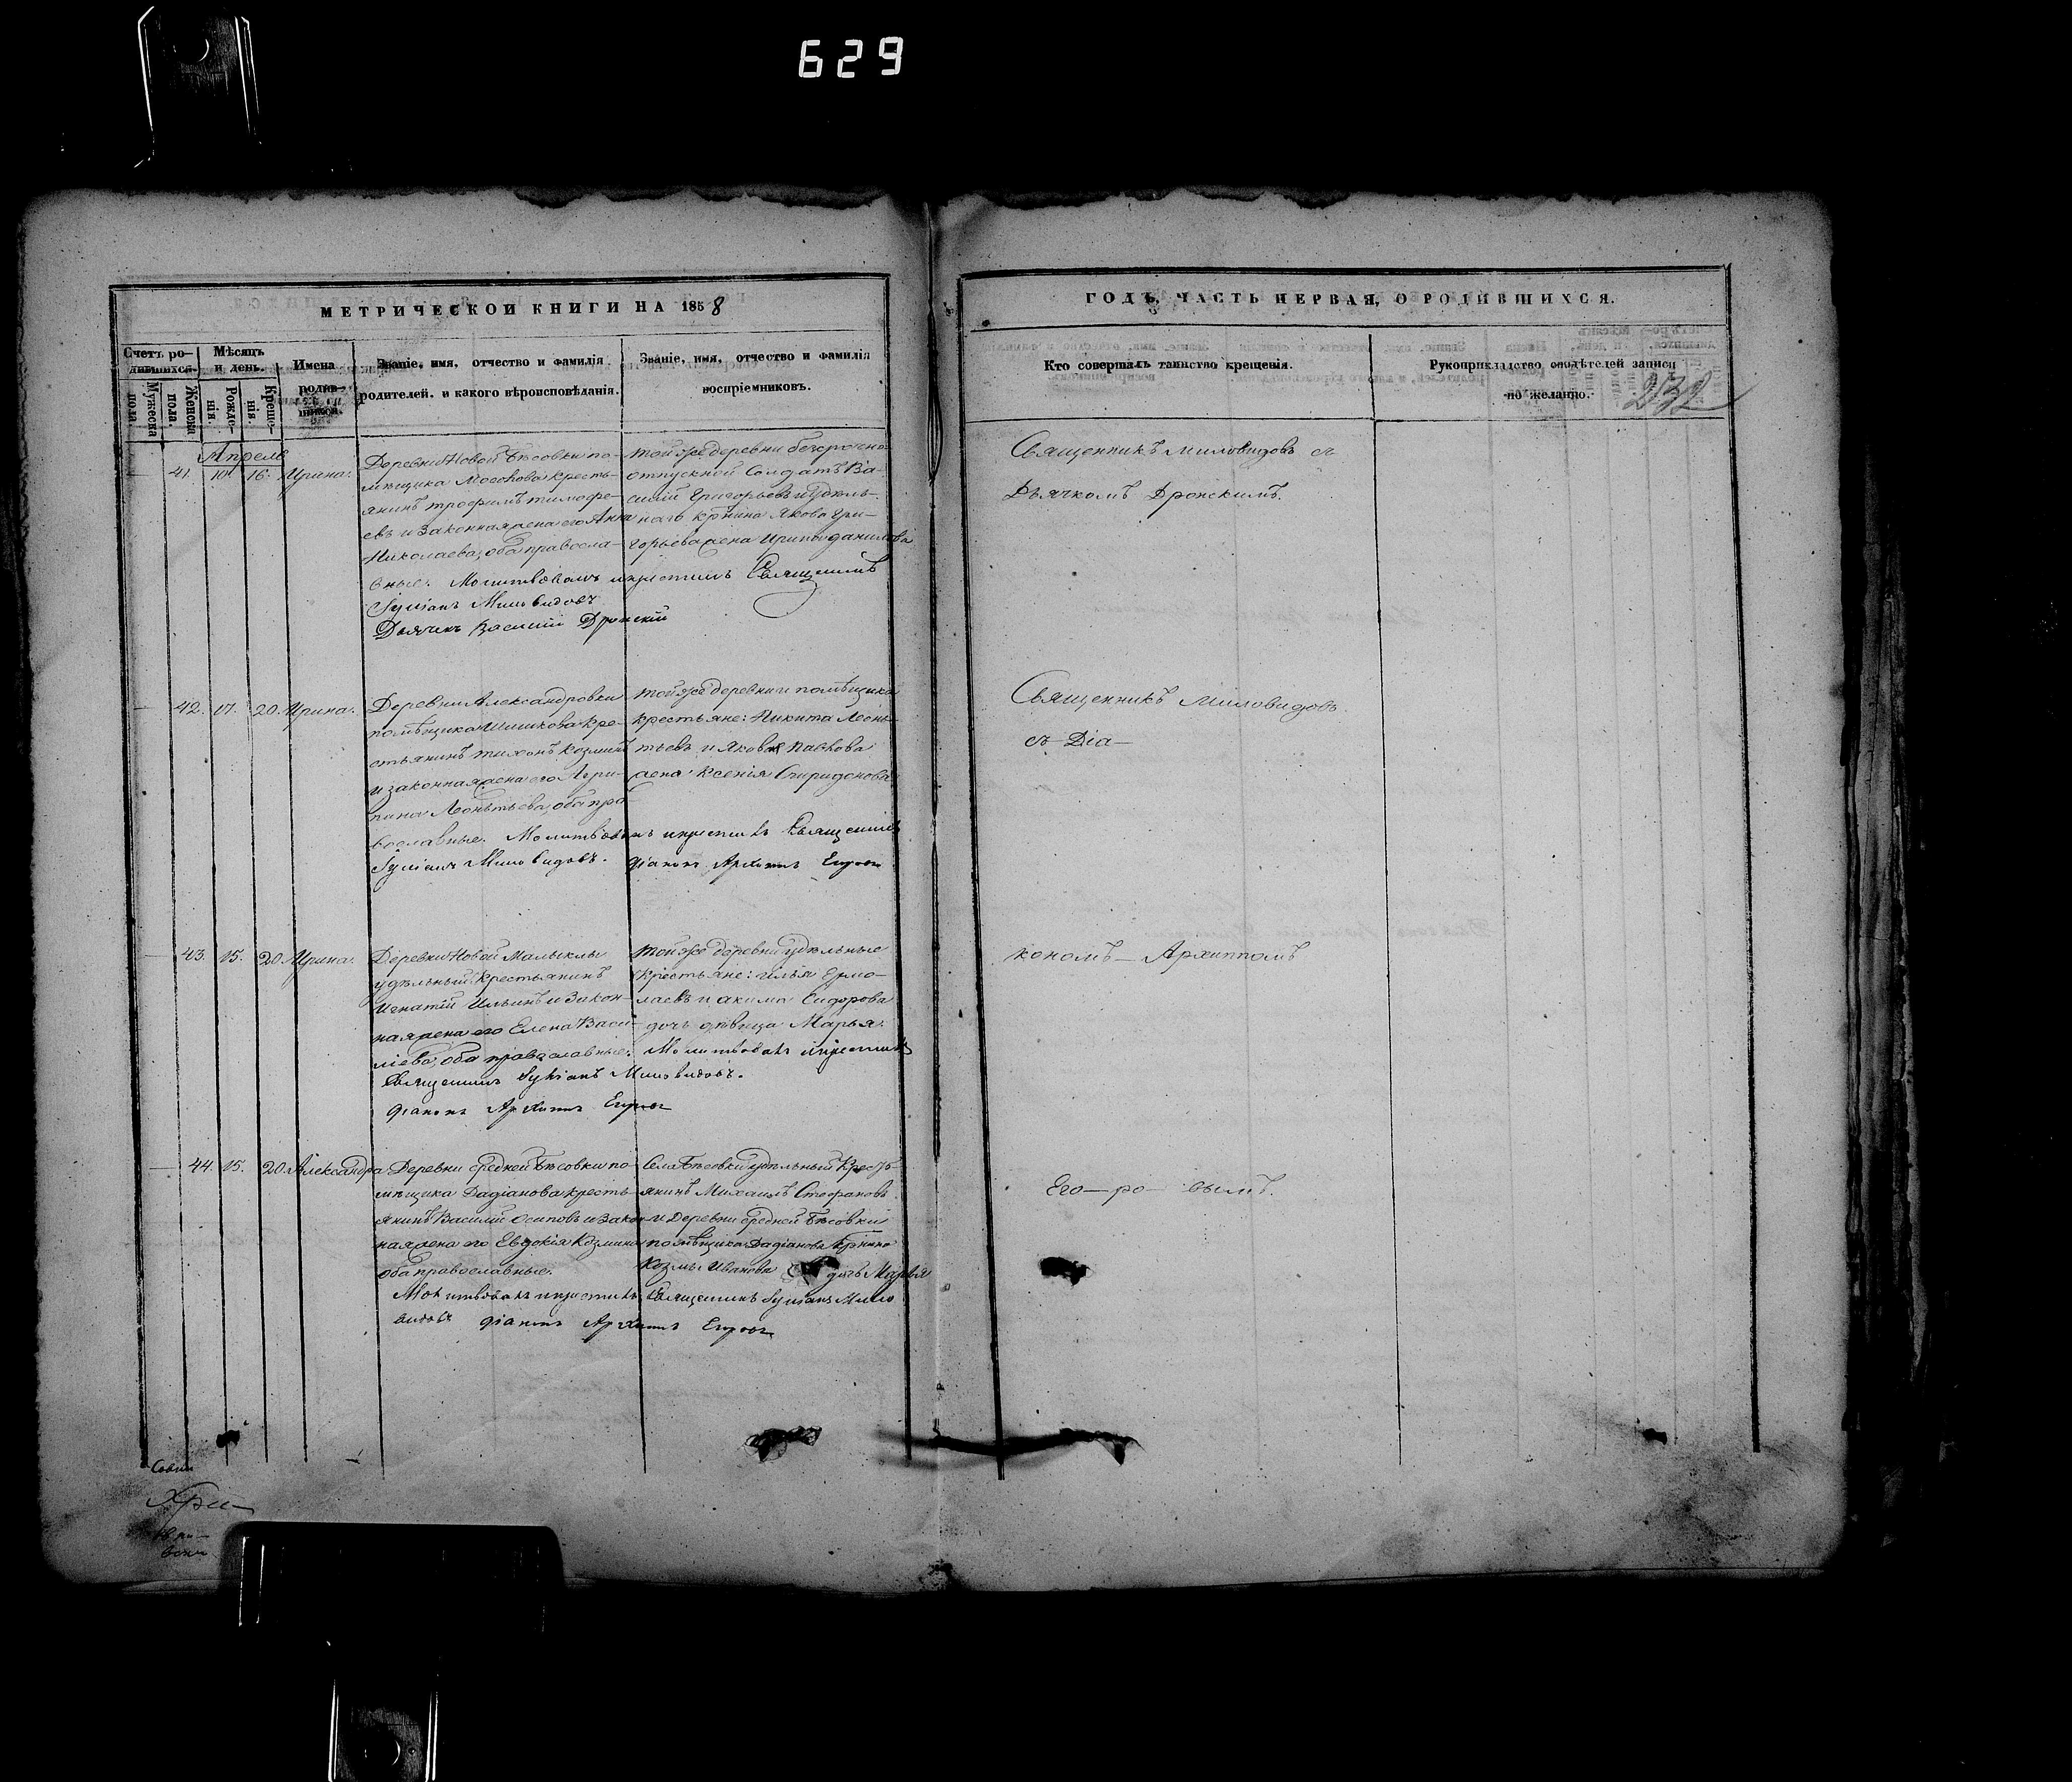 629
МЕТРИЧЕСКОЙ КНИГИ НА 1858
ГОДЪ, ЧАСТЬ ПЕРВАЯ, О РОДИВШИХСЯ.
232
Счетъ ро-
дившихся.
Мужеска
пола
Женска
пола
Мѣсяцъ
и день.
Рожде-
нія.
Креще-
нія.
Имена
родив-
шихся.
Званіе, имя, отчество и фамилія
родителей, и какого вѣроисповѣданія.
Званіе, имя, отчество и фамилія
воспріемниковъ.
Кто совершалъ таинство крещенія.
Рукоприкладство свидѣтелей записи
по желанію.
Апрель
41. 10. 16. Ирина.
Деревни Новой Бѣсовки по-
мѣщика Мосолова кресть-
янинъ Трофимъ Тимофе-
евъ и законная жена его Анна
Николаева, оба правосла-
вные. Молитвовалъ и крестилъ Священникъ
Іуліанъ Миловидовъ
Дьячекъ Василій Дронскій
той же деревни безсрочно-
отпускной Солдатъ Ва-
силій Григорьевъ и удѣль-
наго кр-нина Якова Гри-
горьева жена Ирина Данилова
Священникъ Миловидовъ съ
Дьячкомъ Дронскимъ.
42. 17. 20. Ирина.
Деревни Александровки
помѣщика Шишкова кре-
стьянинъ Тихонъ Козминъ
и законная жена его Агри-
пина Леонтьева, оба пра-
вославные. Молитвовалъ и крестилъ Священникъ
Іуліанъ Миловидовъ. Діаконъ Архипъ Егоровъ
той же деревни и помѣщика
крестьяне: Никита Леонь-
тьевъ и Якова Павлова
жена Ксенія Спиридонова
Священникъ Миловидовъ
съ Діа-
43. 15. 20. Ирина.
Деревни Новой Малыклы
удѣльный крестьянинъ
Игнатій Ильинъ и закон-
ная жена его Елена Васи-
ліева, оба православные. Молитвовалъ и крестилъ
Священникъ Іуліанъ Миловидовъ.
Діаконъ Архипъ Егоровъ
той же деревни удѣльные
крестьяне: Илья Ермо-
лаевъ и Акима Сидорова
дочь дѣвица Марья.
кономъ Архиппомъ
44. 15. 20. Александра
Деревни Средней Бѣсовки по-
мѣщика Дадіанова кресть-
янинъ Василій Осиповъ и закон-
ная жена его Евдокія Козмина
оба православные.
Молитвовалъ и крестилъ Священникъ Іуліанъ Мило
видовъ Діаконъ Архипъ Егоровъ
Села Бѣсовки удѣльный крестъ-
янинъ Михаилъ Стефановъ
и Деревни Средней Бѣсовки
помѣщика Дадіанова кр-нина
Козмы Иванова дочь Марья
Его-ро-вымъ.
Хри-